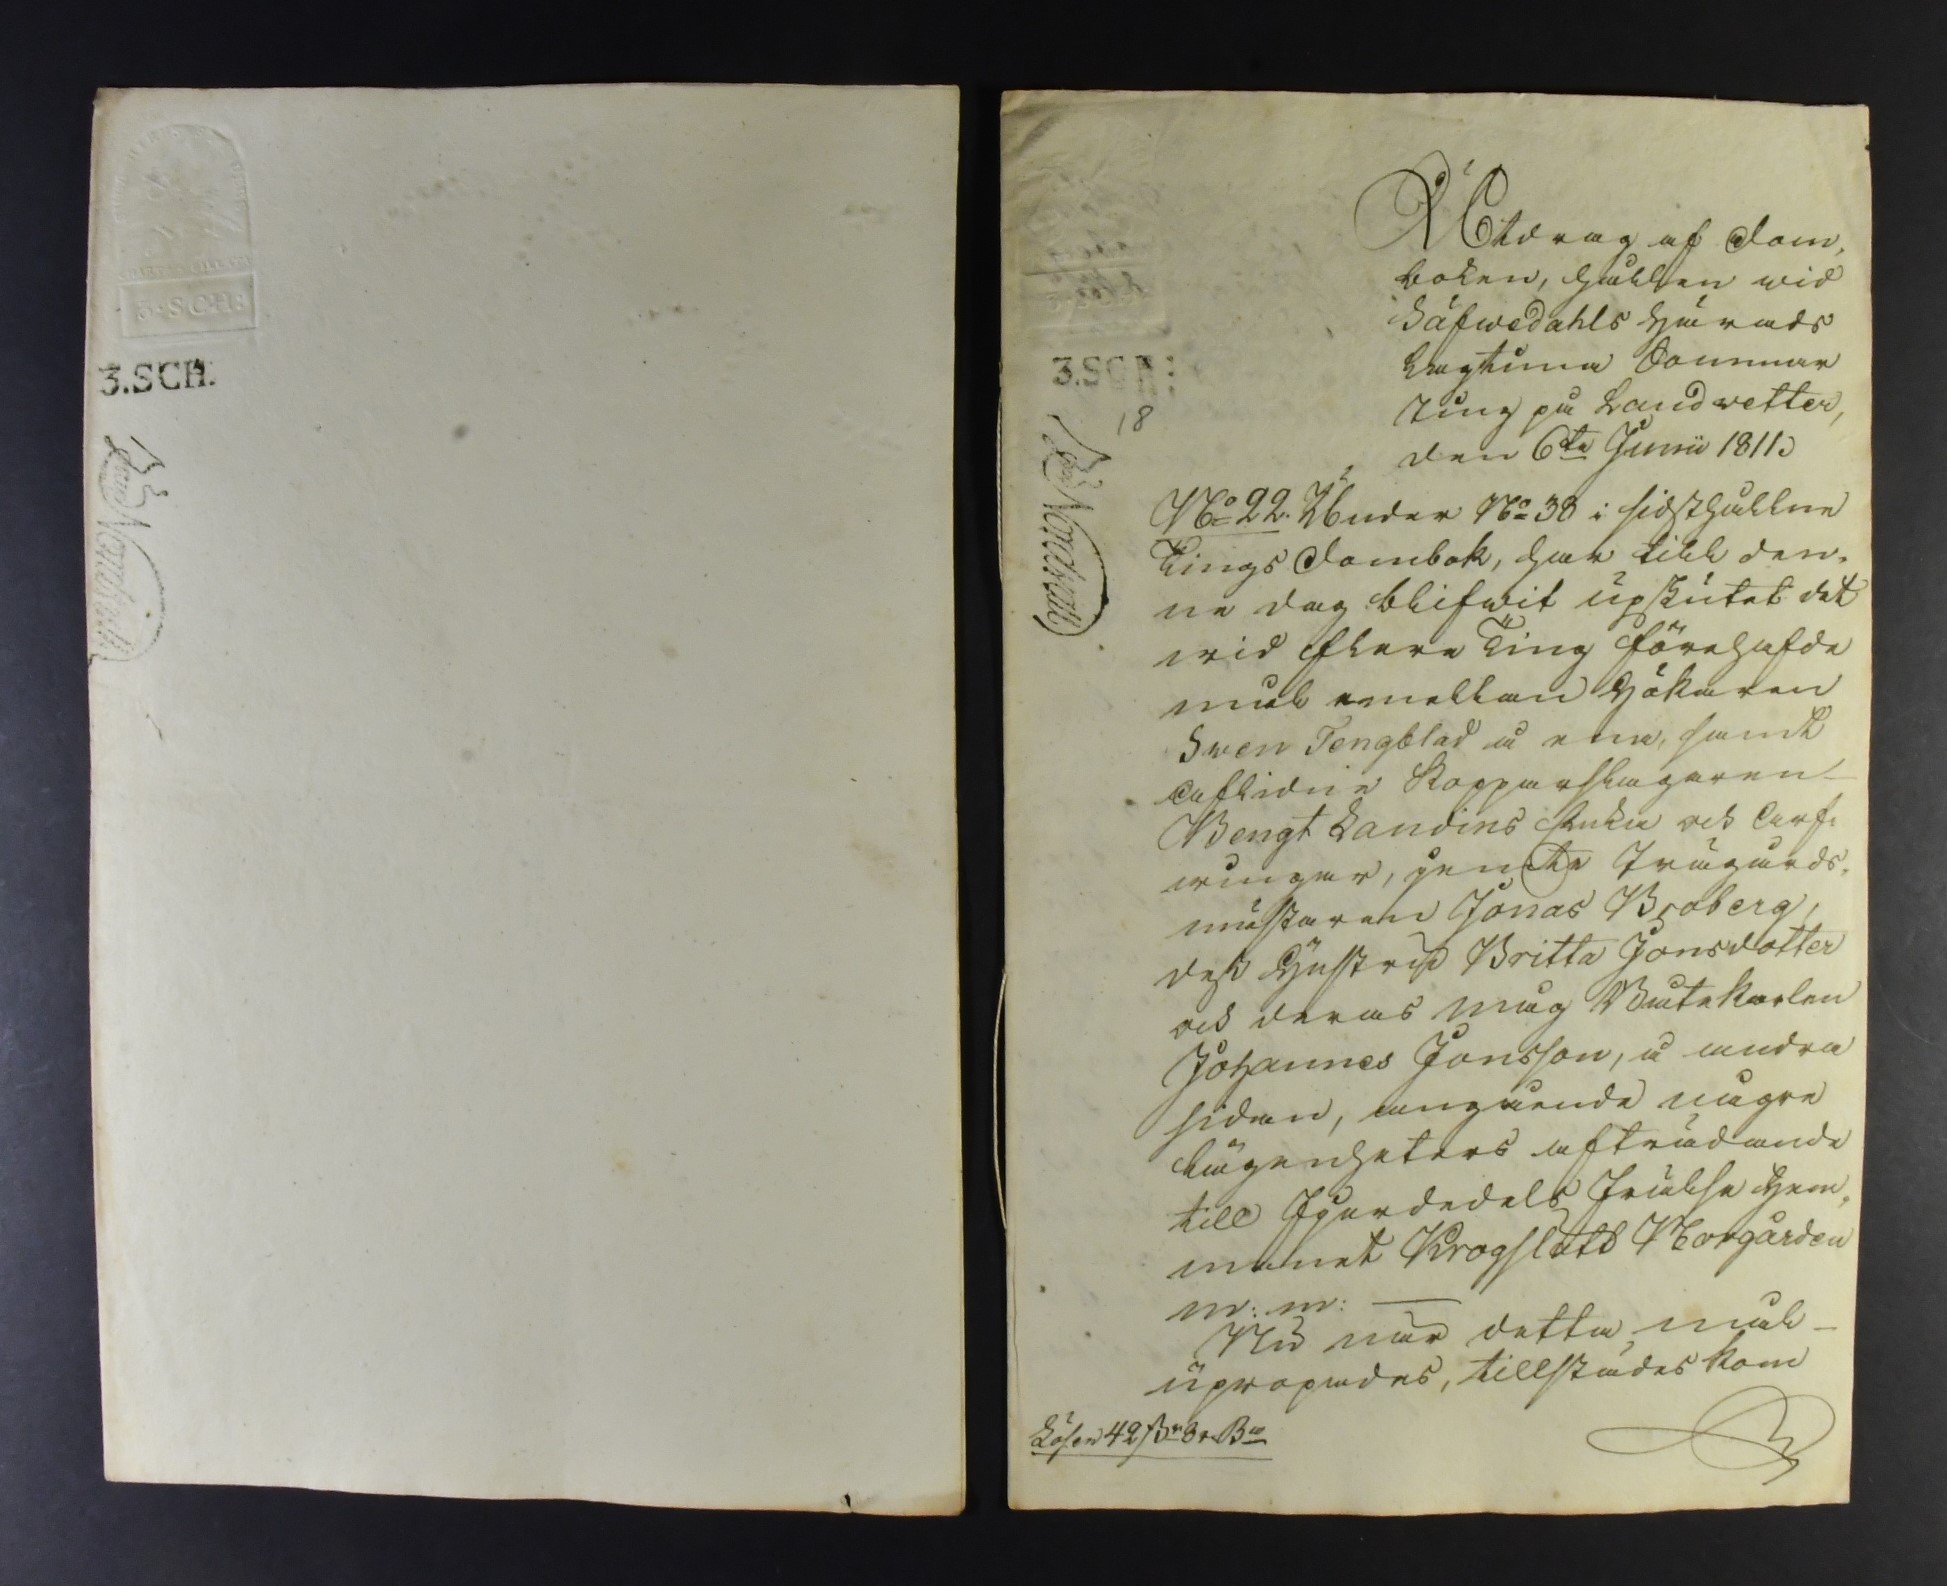 3:SCH:
3.SCH.
Nordvall
3.SCH:
18
Nordvall
Utdrag af Dom-
boken, hållen wid
Säfwedahls Härads
Lagtima Sommar
Ting på Landwetter,
den 6te Junii 1811.
No 22. Under No 38 i sidsthållne
Tings Dombok, har till den-
ne dag blifwit upskutet det
wid flere Ting förehafde
mål emellan Hökaren
Swen Tengblad å ena, samt
aflidne Kopparslagaren
Bengt Landins Enka och Arf-
wingar, gente Trägårds-
mästaren Jonas Broberg,
des Hustru Britta Jonsdotter
och deras Måg Båtskarlen
Johannes Jonsson, å andra
sidan, angående någre
lägenheters afträdande
till Fjerdedels Frälse Hem-
manet Krogslätt Norgården
m: m:
Nu när detta mål
upropades, tillstädes kom
Lösen 42 ß 8 r Bco